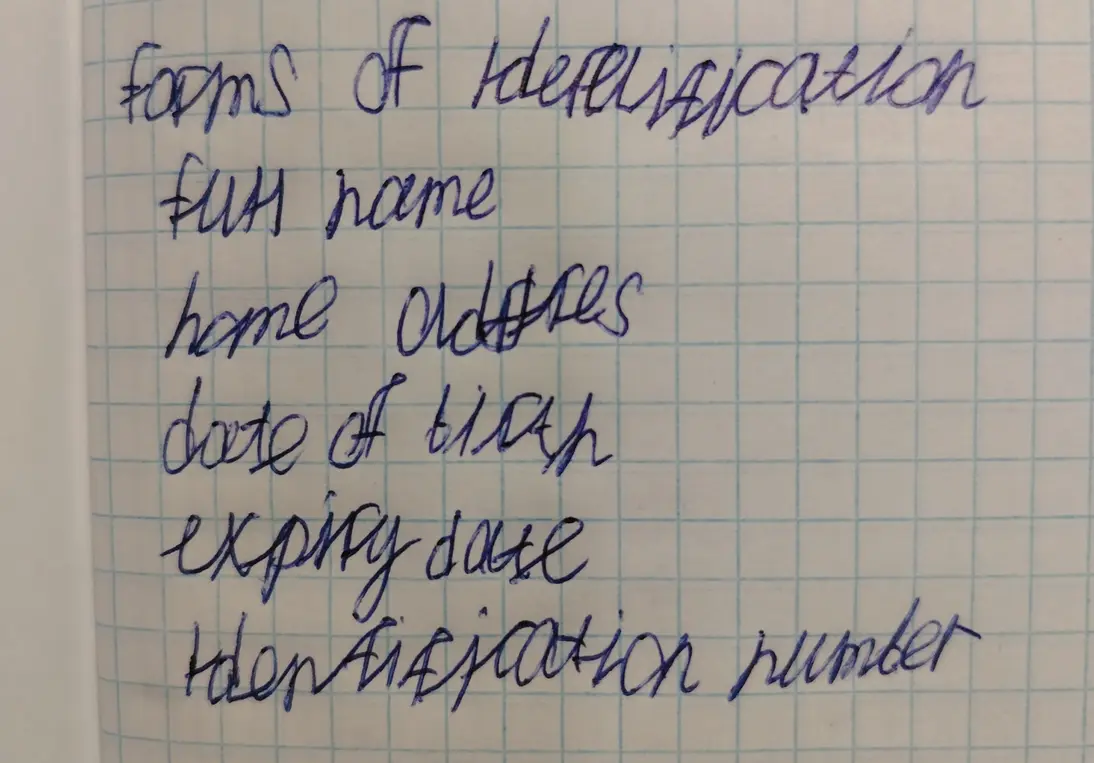 forms of Identification
full name
home addres
date of birth
expiry date
Identification number